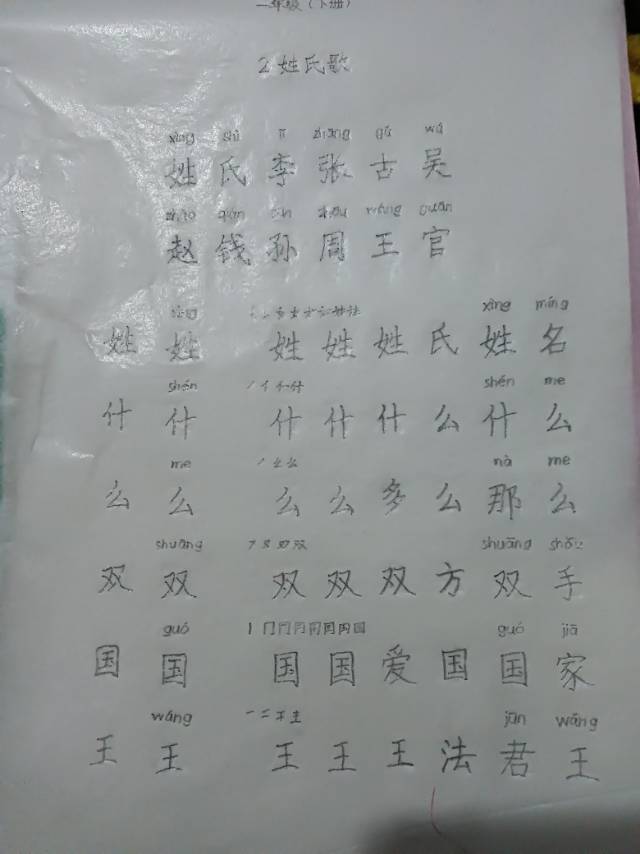 一年级（下册）
2 姓氏歌
xìng shì lǐ zhāng gǔ wú
姓 氏 李 张 古 吴
zhào qián sūn zhōu wáng guān
赵 钱 孙 周 王 官
xìng xìng míng
姓 姓 姓 姓 姓 氏 姓 名
shén shén me
什 什 什 什 什 么 什 么
me nà me
么 么 么 么 多 么 那 么
shuāng shuāng shǒu
双 双 双 双 双 方 双 手
guó guó jiā
国 国 国 国 爱 国 国 家
wáng 一 二 干 王 jūn wáng
王 王 王 王 王 法 君 王